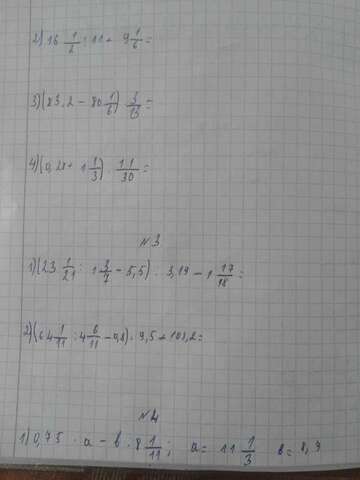 2) 16 1/2 : 11 + 9 1/6 =
3) (83,2 - 80 1/6) · 3/13 =
4) (0,28 + 1 1/3) · 11/30 =
№3
1) (23 1/21 : 1 3/7 - 5,5) · 3,19 - 1 17/18 =
2) (64 1/11 : 4 6/11 - 0,8) · 9,5 + 108,2 =
№4
1) 0,75 · a - b · 8 1/11; a = 11 1/3 b =